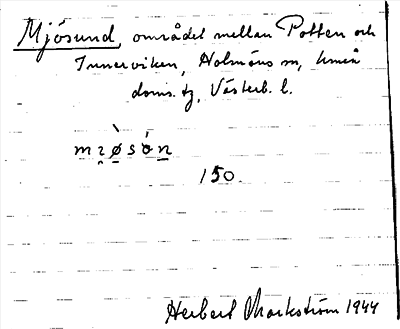 Mjösund, området mellan Potten och
Innerviken, Holmöns sn, Umeå
doms. tg, Västerb. l.
150.
Herbert Markström 1944